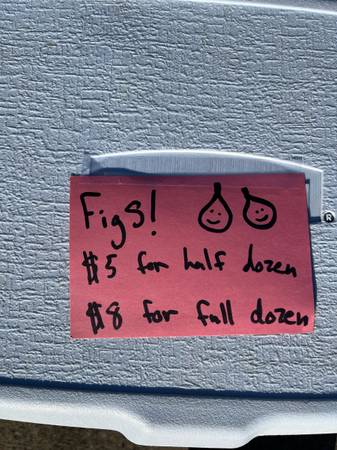 Figs!
$5 for half dozen
$8 for full dozen
®